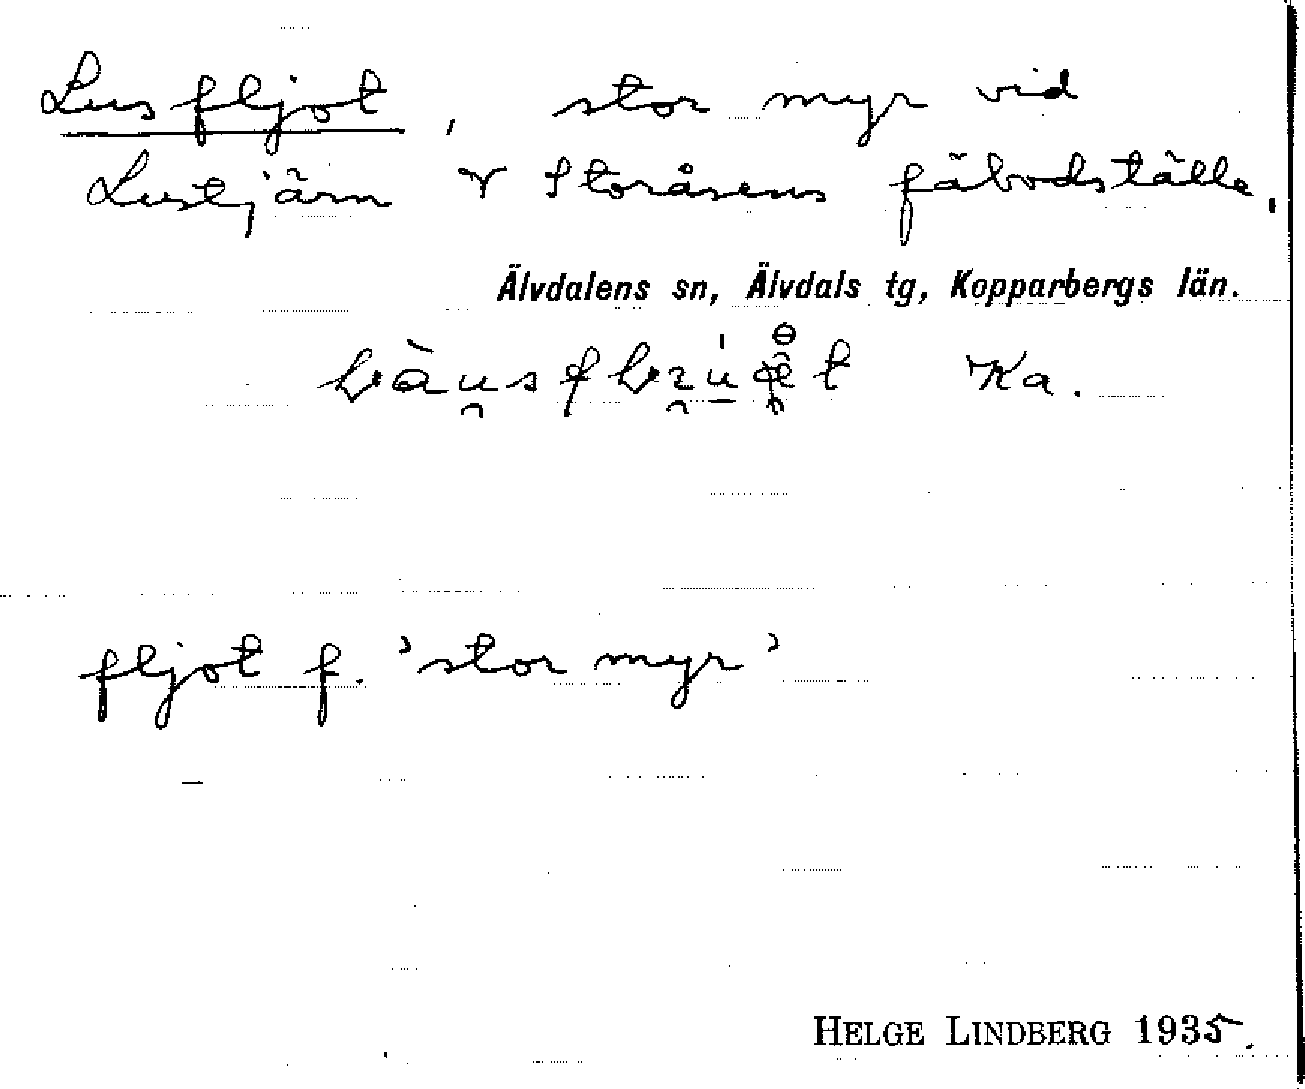 Lusfljot, stor myr vid
Lustjärn v Storåsens fäbodställe.
Älvdalens sn, Älvdals tg, Kopparbergs län.
Ka.
fljot f. 'stor myr'
HELGE LINDBERG 1935.